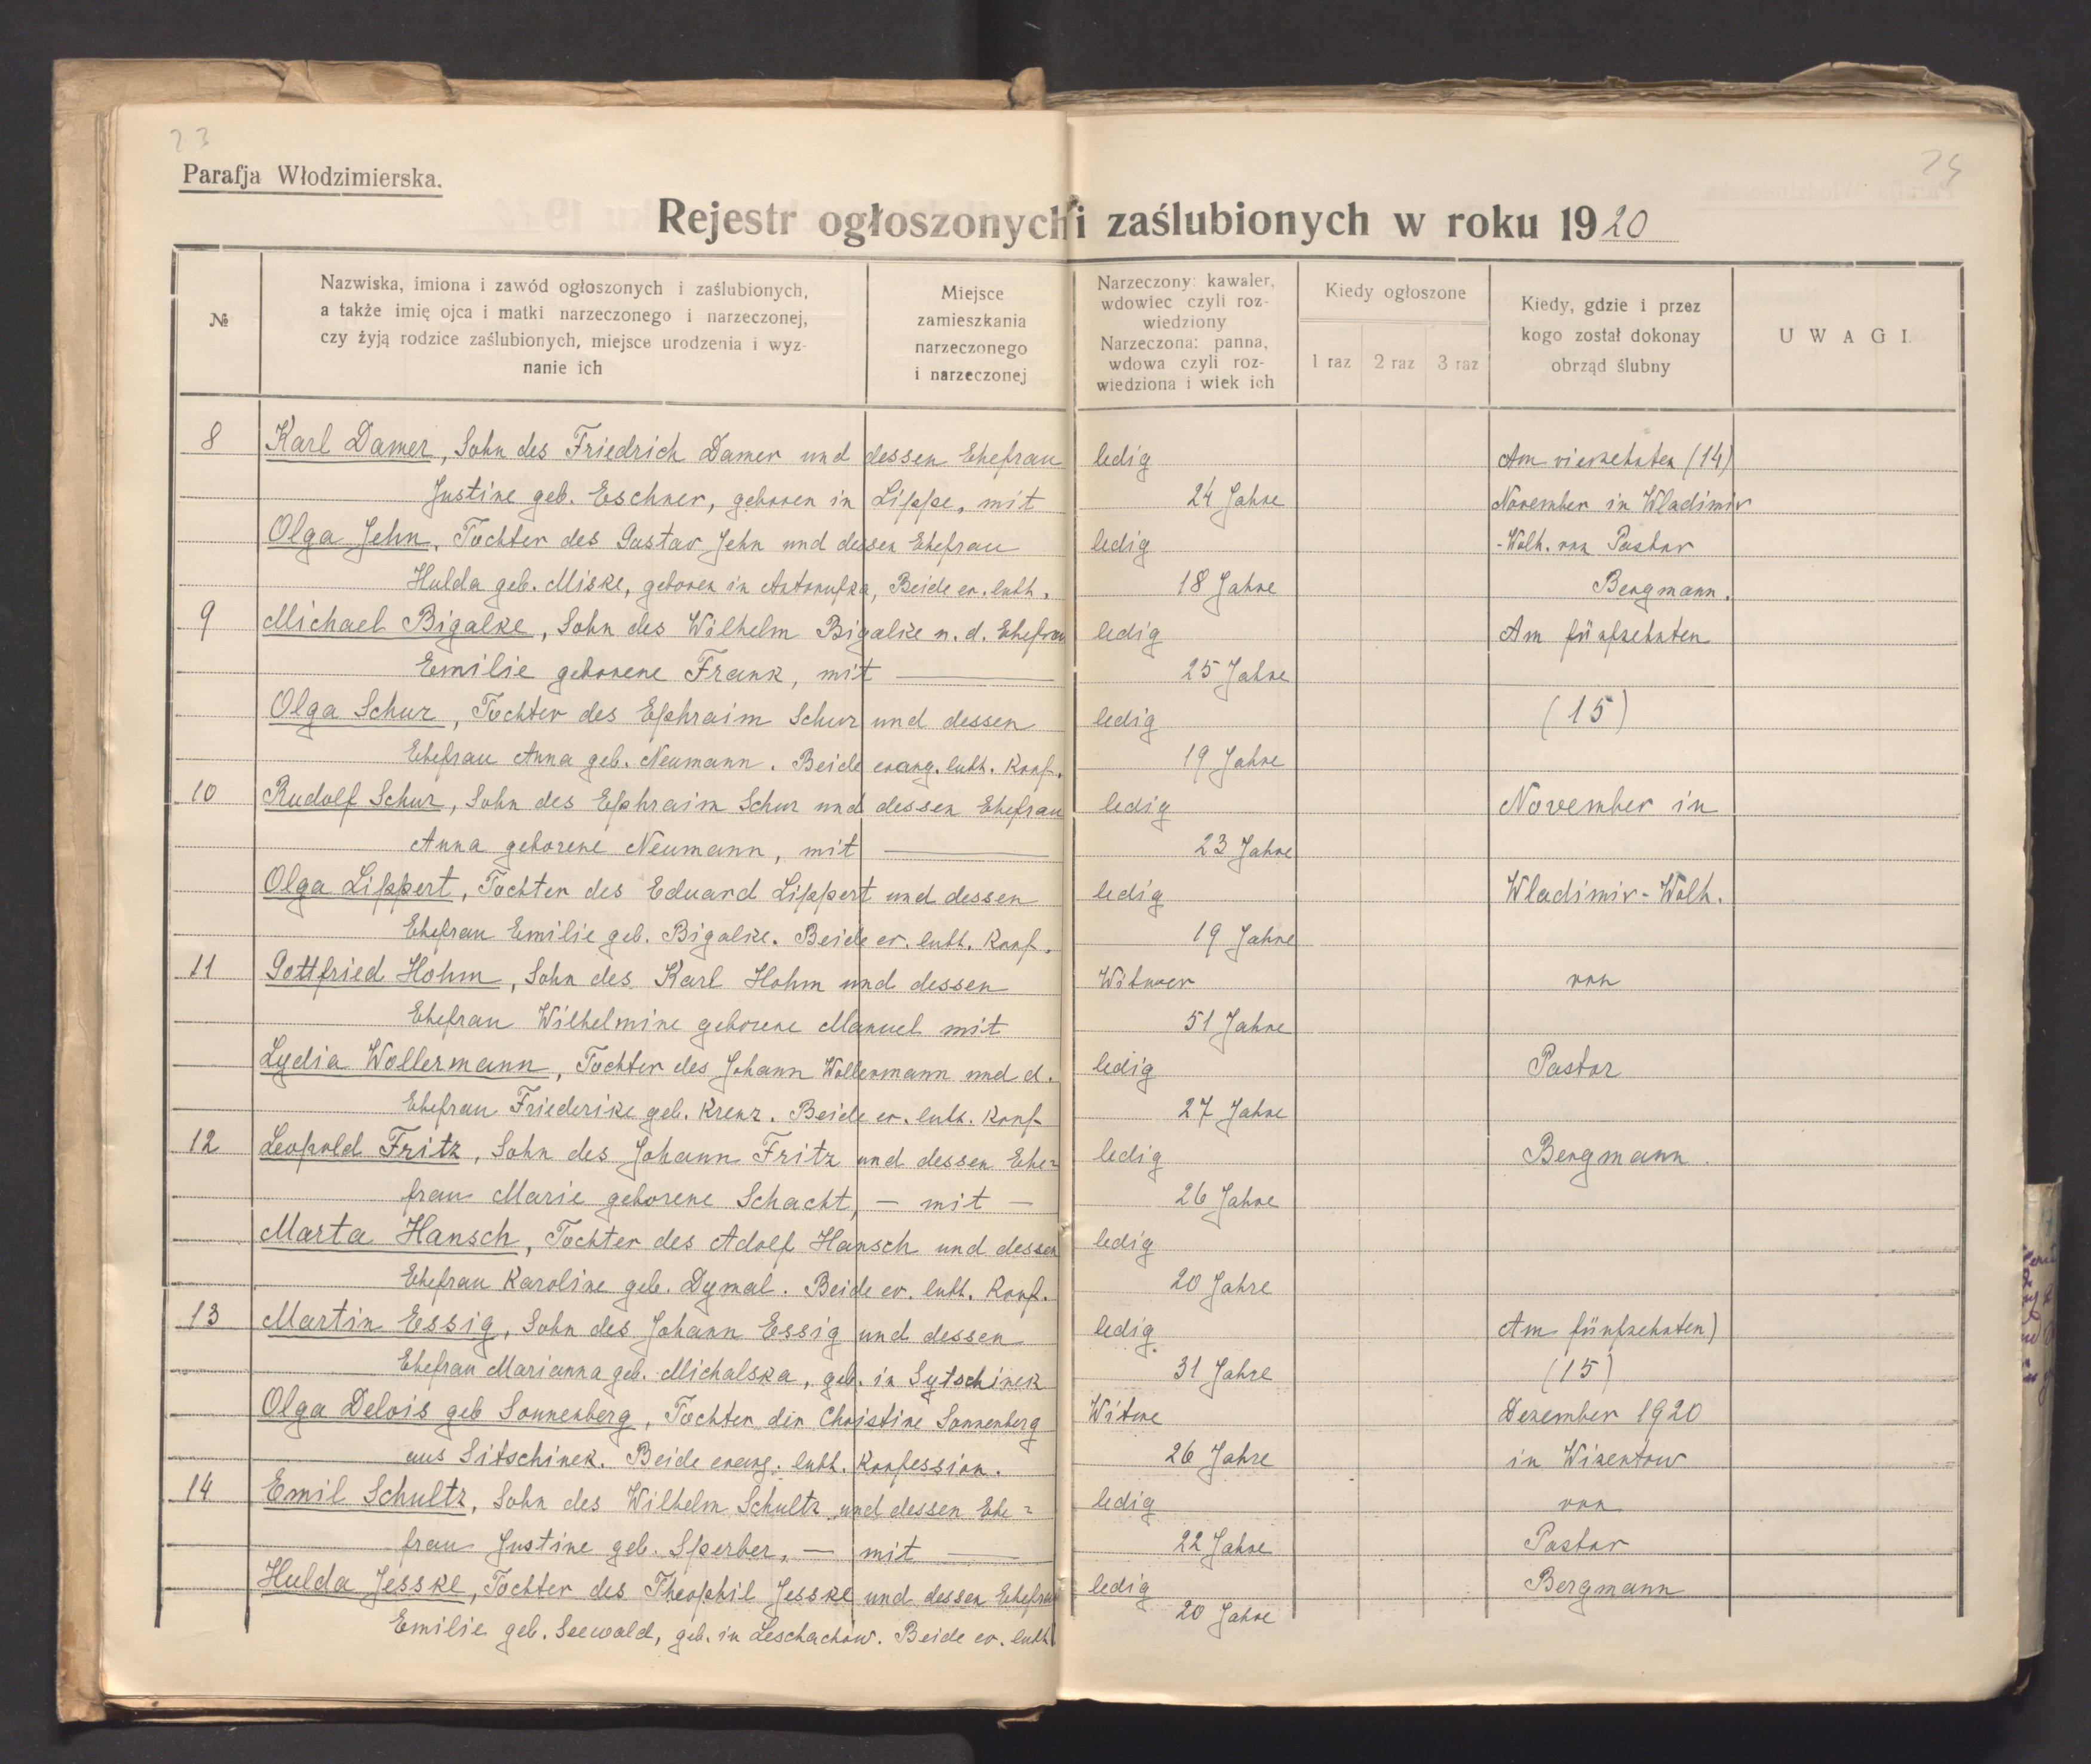 23
24
Parafja Włodzimierska.
Rejestr ogłoszonych i zaślubionych w roku 1920
№
Nazwiska, imiona i zawód ogłoszonych i zaślubionych,
a także imię ojca i matki narzeczonego i narzeczonej,
czy żyją rodzice zaślubionych, miejsce urodzenia i wyz-
nanie ich
Miejsce
zamieszkania
narzeczonego
i narzeczonej
Narzeczony: kawaler,
wdowiec czyli roz-
wiedziony
Narzeczona: panna,
wdowa czyli roz-
wiedziona i wiek ich
Kiedy ogłoszone
1 raz 2 raz 3 raz
Kiedy, gdzie i przez
kogo został dokonay
obrząd ślubny
UWAGI
8 Karl Damer, Sohn des Friedrich Damer und dessen Ehefrau ledig Am vierzehnten (14)
Justine geb. Eschner, geboren in Lippe, mit 24 Jahre November in Wladimir
Olga Jehn, Tochter des Gustav Jehn und dessen Ehefrau ledig -Wolh. von Pastor
Hulda geb. Miske, geboren in Antonufka, Beide ev. luth. 18 Jahre Bergmann.
9 Michael Bigalke, Sohn des Wilhelm Bigalke u. d. Ehefrau ledig Am fünfzehnten
Emilie geborene Frank, mit 25 Jahre
Olga Schur, Tochter des Ephraim Schur und dessen ledig (15)
Ehefrau Anna geb. Neumann. Beide evang. luth. Konf. 19 Jahre
10 Rudolf Schur, Sohn des Ephraim Schur und dessen Ehefrau ledig November in
Anna geborene Neumann, mit 23 Jahre
Olga Lippert, Tochter des Eduard Lippert und dessen ledig Wladimir-Wolh.
Ehefrau Emilie geb. Bigalke. Beide ev. luth. Konf. 19 Jahre
11 Gottfried Hohm, Sohn des Karl Hohm und dessen Witwer von
Ehefrau Wilhelmine geborene Manuel mit 51 Jahre
Lydia Wollermann, Tochter des Johann Wollermann und d. ledig Pastor
Ehefrau Friederike geb. Krenz. Beide ev. luth. Konf. 27 Jahre
12 Leopold Fritz, Sohn des Johann Fritz und dessen Ehe= ledig Bergmann.
frau Marie geborene Schacht, — mit — 26 Jahre
Marta Hansch, Tochter des Adolf Hansch und dessen ledig
Ehefrau Karoline geb. Dymal. Beide ev. luth. Konf. 20 Jahre
13 Martin Essig, Sohn des Johann Essig und dessen ledig Am fünfzehnten)
Ehefrau Marianna geb. Michalska, geb. in Sytschinek 31 Jahre (15)
Olga Delois geb Sonnenberg, Tochter der Christine Sonnenberg Witwe Dezember 1920
aus Sitschinek. Beide evang. luth. Konfession. 26 Jahre in Wisentow
14 Emil Schultz, Sohn des Wilhelm Schultz und dessen Ehe= ledig von
frau Justine geb. Sperber, — mit — 22 Jahre Pastor
Hulda Jesske, Tochter des Theophil Jesske und dessen Ehefrau ledig Bergmann
Emilie geb. Seewald, geb. in Leschachow. Beide ev. luth 20 Jahre